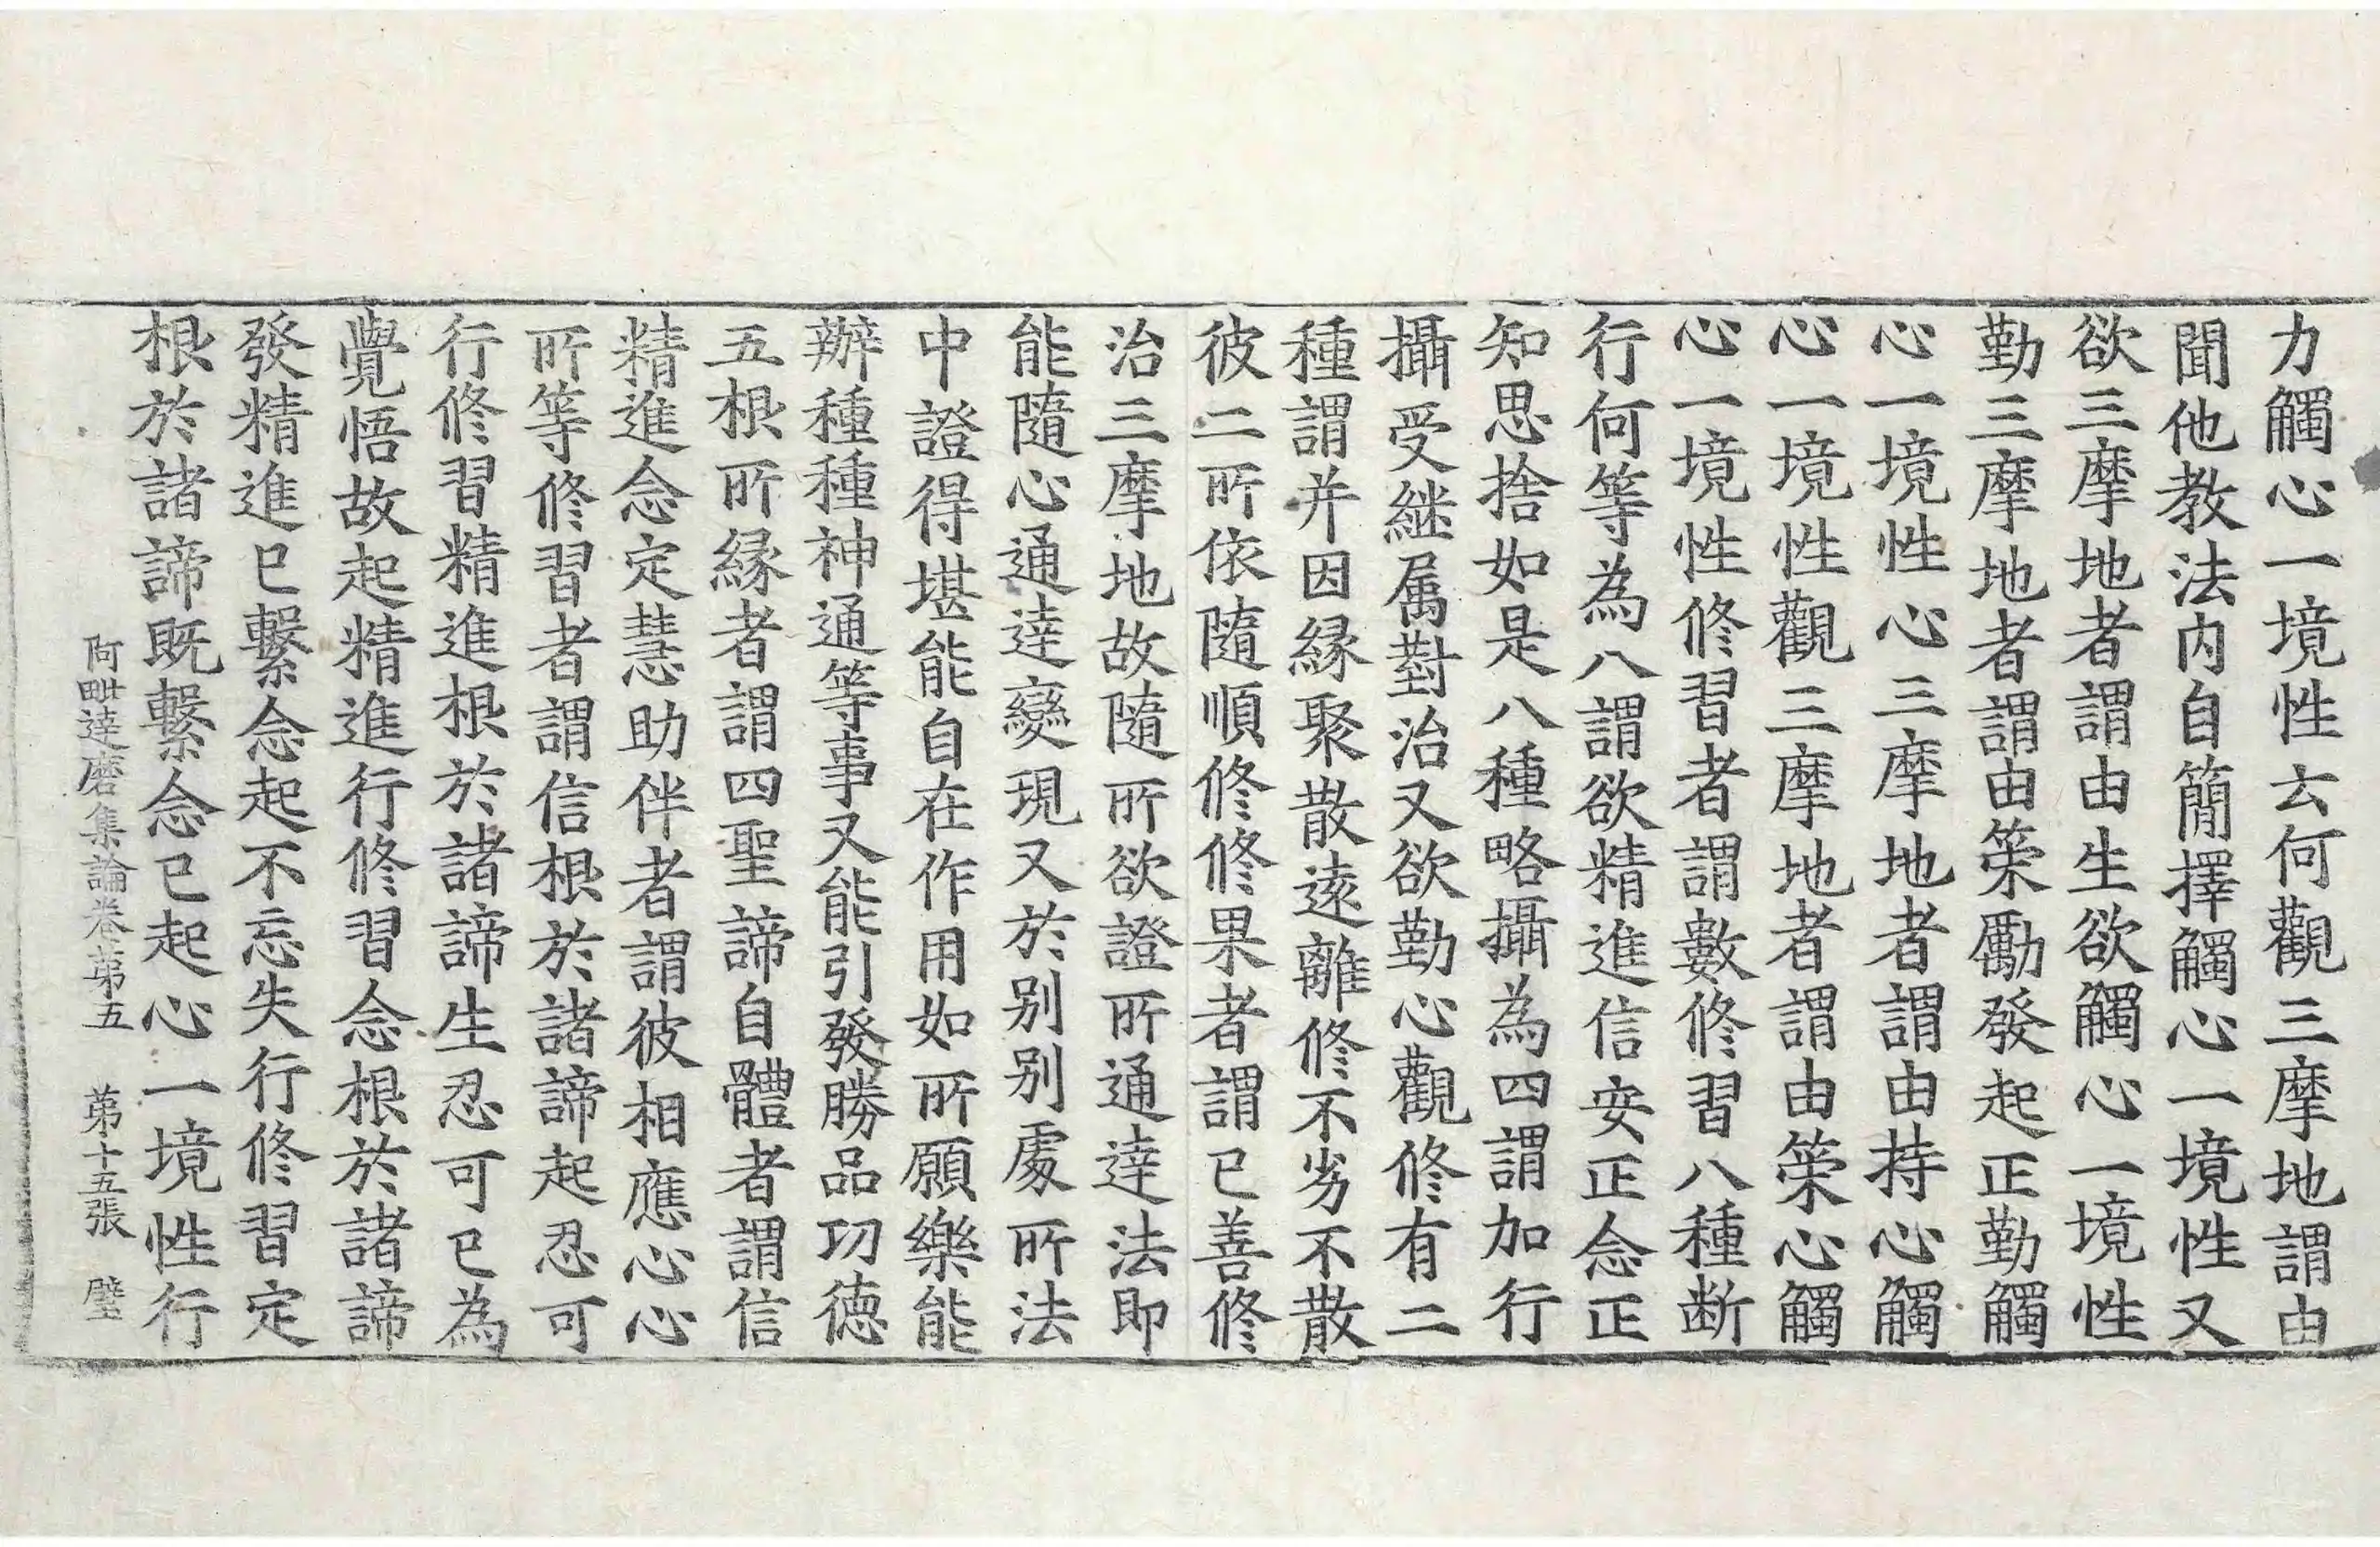 力觸心一境性云何觀三摩地謂由
聞他教法内自簡擇觸心一境性又
欲三摩地者謂由生欲觸心一境性
勤三摩地者謂由策勵發起正勤觸
心一境性心三摩地者謂由持心觸
心一境性觀三摩地者謂由策心觸
心一境性修習者謂數修習八種断
行何等為八謂欲精進信安正念正
知思捨如是八種略攝為四謂加行
攝受継属對治又欲勤心觀修有二
種謂并因縁聚散遠離修不劣不散
彼二所依隨順修修果者謂已善修
治三摩地故隨所欲證所通達法即
能隨心通達變現又於別別處所法
中證得堪能自在作用如所願樂能
辦種種神通等事又能引發勝品功德
五根所縁者謂四聖諦自體者謂信
精進念定慧助伴者謂彼相應心心
所等修習者謂信根於諸諦起忍可
行修習精進根於諸諦生忍可已為
覺悟故起精進行修習念根於諸諦
發精進已繫念起不忘失行修習定
根於諸諦既繫念已起心一境性行
阿毗達磨集論卷第五　第十五張　璧